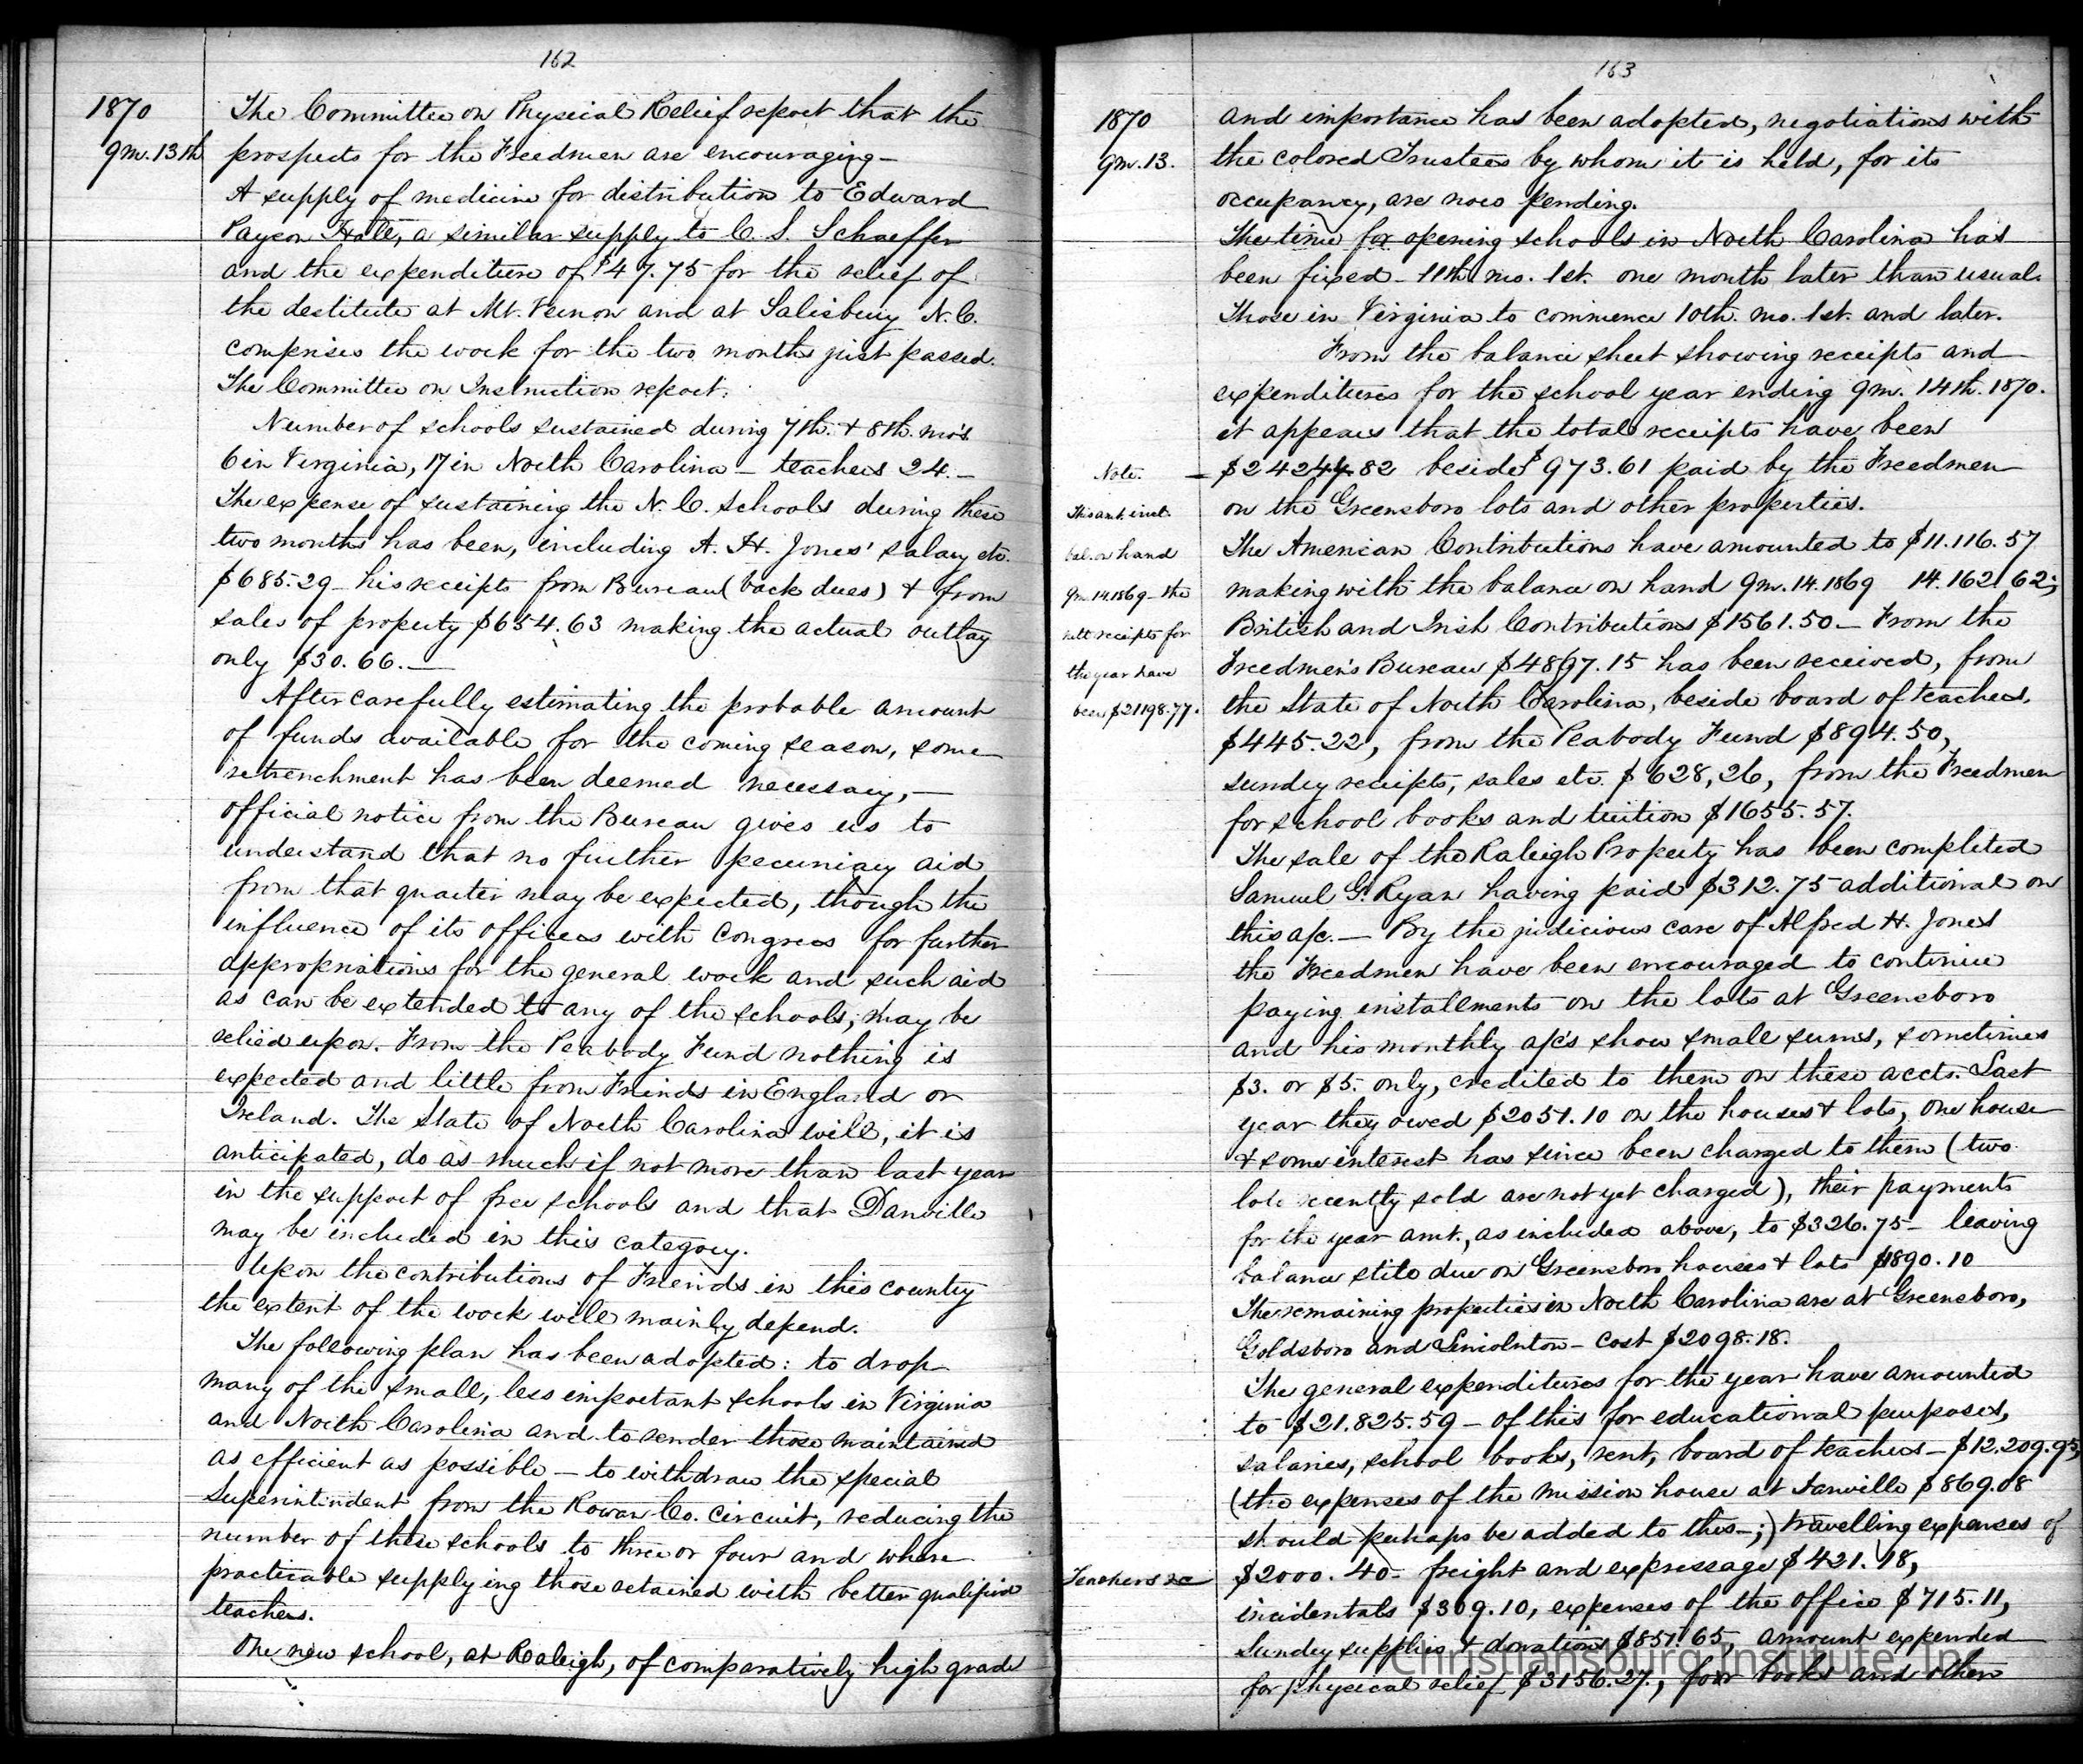 162
1870
9m. 13th
The Committee on Physical Relief report that the
prospects for the Freedmen are encouraging—
A supply of medicine for distribution to Edward
Payson Hall, a similar supply to C. S. Schaeffer
and the expenditure of $47.75 for the relief of
the destitute at Mt. Vernon and at Salisbury N.C.
comprises the work for the two months just passed.
The Committee on Instruction report:
Number of schools sustained during 7th. & 8th. mo's
6 in Virginia, 17 in North Carolina — teachers 24.—
The expense of sustaining the N. C. schools during these
two months has been, including A. H. Jones' salary etc.
$685.29 — his receipts from Bureau (back dues) & from
sales of property $654.63 making the actual outlay
only $30.66.—
After carefully estimating the probable amount
of funds available for the coming season, some
retrenchment has been deemed necessary,—
official notice from the Bureau gives us to
understand that no further pecuniary aid
from that quarter may be expected, though the
influence of its officers with Congress for further
appropriations for the general work and such aid
as can be extended to any of the schools, may be
relied upon. From the Peabody Fund nothing is
expected and little from Friends in England or
Ireland. The State of North Carolina will, it is
anticipated, do as much if not more than last year
in the support of free schools and that Danville
may be included in this category.
Upon the contributions of Friends in this country
the extent of the work will mainly depend.
The following plan has been adopted: to drop
many of the small, less important schools in Virginia
and North Carolina and to render those maintained
as efficient as possible — to withdraw the special
Superintendent from the Rowan Co. circuit, reducing the
number of these schools to three or four and where
practicable supplying those retained with better qualified
teachers.
One new school, at Raleigh, of comparatively high grade
163
1870
9m. 13.
and importance has been adopted, negotiations with
the colored Trustees by whom it is held, for its
occupancy, are now pending.
The time for opening schools in North Carolina has
been fixed — 11th mo. 1st. one month later than usual.
Those in Virginia to commence 10th. mo. 1st. and later.
From the balance sheet showing receipts and
expenditures for the school year ending 9m. 14th. 1870.
it appears that the total receipts have been
$24244.82 beside $973.61 paid by the Freedmen
on the Greensboro lots and other properties.
Note.
This amt. incl.
bal. on hand
9m. 14. 1869 — the
nett receipts for
the year have
been $21198.77.
The American Contributions have amounted to $11.116.57
making with the balance on hand 9m. 14. 1869 14.162 62;
British and Irish Contributions $1561.50 — From the
Freedmen's Bureau $4897.15 has been received, from
the State of North Carolina, beside board of teachers,
$445.22, from the Peabody Fund $894.50,
sundry receipts, sales etc. $628,26, from the Freedmen
for school books and tuition $1655.57.
The sale of the Raleigh Property has been completed
Samuel G. Ryan having paid $312.75 additional on
this a/c. — By the judicious care of Alfred H. Jones
the Freedmen have been encouraged to continue
paying installments on the lots at Greensboro
and his monthly a/c's show small sums, sometimes
$3. or $5. only, credited to them on these accts. Last
year they owed $2051.10 on the houses & lots, one house
& some interest has since been charged to them (two
lots recently sold are not yet charged), their payments
for the year amt., as included above, to $326.75 — leaving
balance still due on Greensboro houses & lots $1890.10
The remaining properties in North Carolina are at Greensboro,
Goldsboro and Lincolnton — cost $2098.18.
The general expenditures for the year have amounted
to $21.825.59 — of this for educational purposes,
salaries, school books, rent, board of teachers — $12.209.95,
(the expenses of the mission house at Danville $869.08
should perhaps be added to this—;) travelling expenses of
Teachers &c
$2000.40 — freight and expressage $421.18,
incidentals $309.10, expenses of the office $715.11,
Sundry supplies & donations $851.65, amount expended
for physical relief $3156.27., for books and other
Christiansburg Institute, Inc